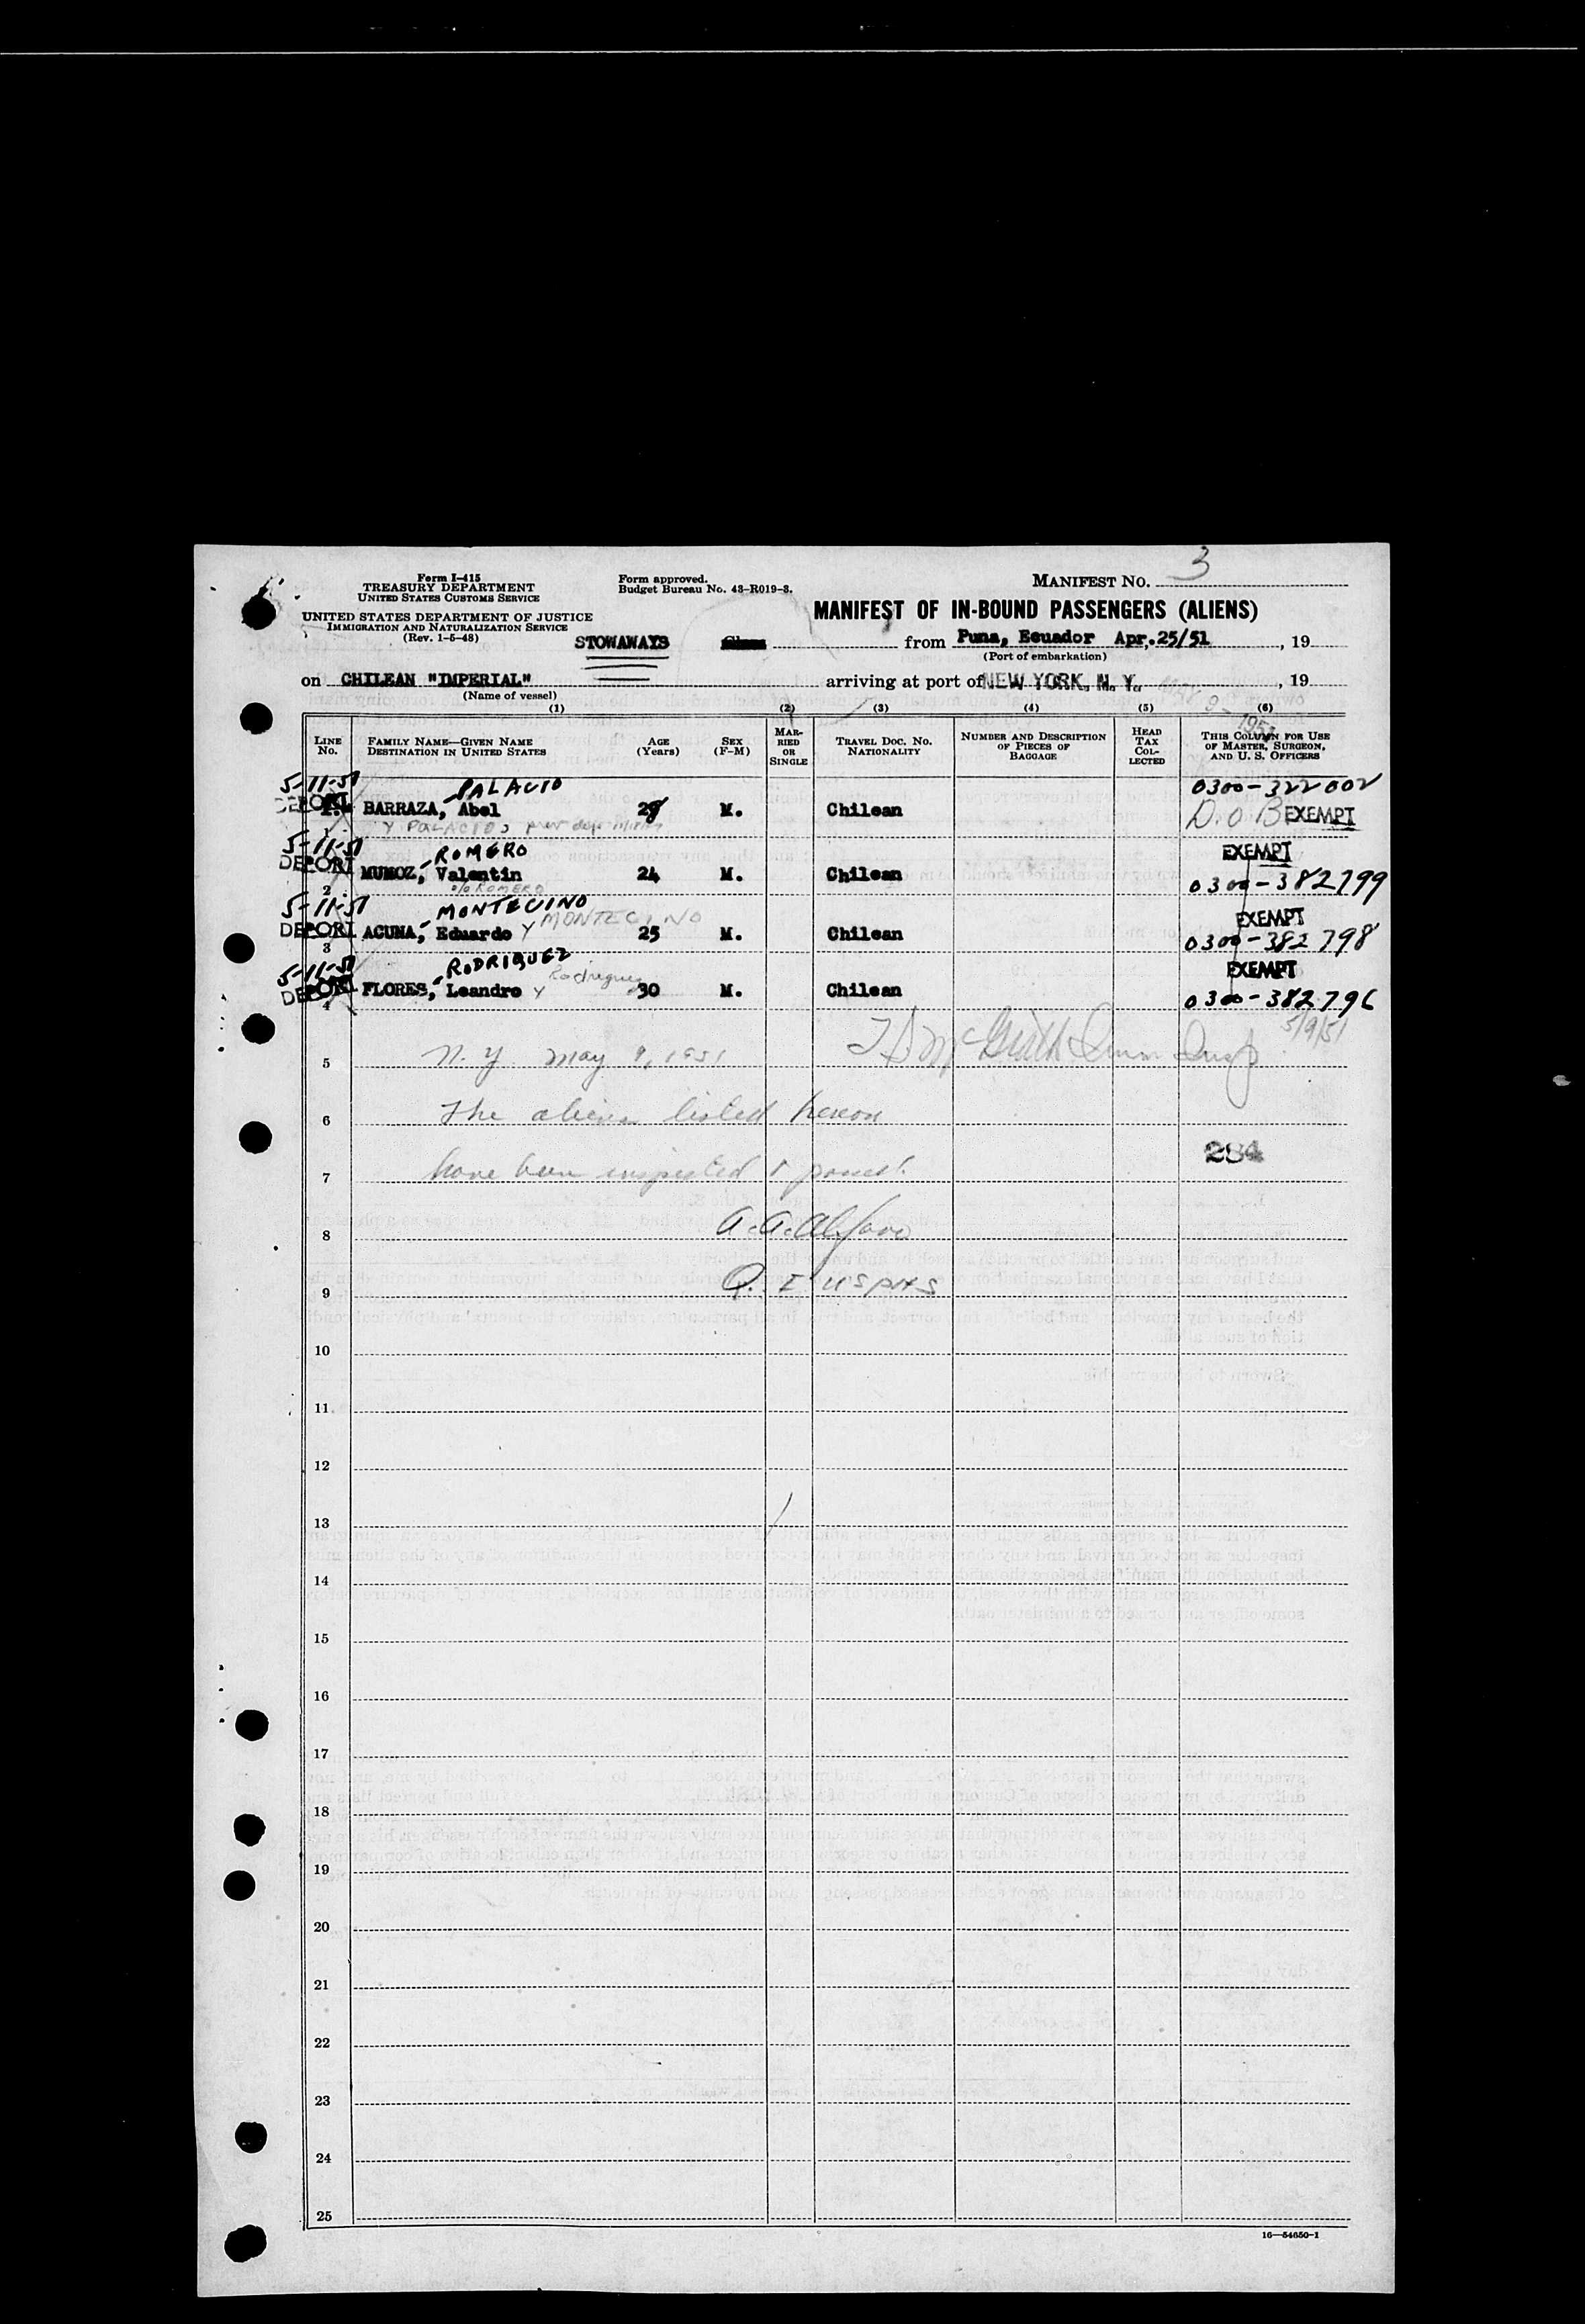 Form I-415
TREASURY DEPARTMENT
UNITED STATES CUSTOMS SERVICE
UNITED STATES DEPARTMENT OF JUSTICE
IMMIGRATION AND NATURALIZATION SERVICE
(Rev. 1-5-48)
Form approved.
Budget Bureau No. 43-R019-3.
MANIFEST NO. 3
MANIFEST OF IN-BOUND PASSENGERS (ALIENS)
STOWAWAYS Class from Puna, Ecuador Apr.25/51, 19
(Port of embarkation)
on CHILEAN "IMPERIAL" arriving at port of NEW YORK, N. Y. MAY 9 - 1951, 19
(Name of vessel)
(1) (2) (3) (4) (5) (6)
LINE NO.
FAMILY NAME—GIVEN NAME
DESTINATION IN UNITED STATES
AGE (Years)
SEX (F-M)
MARRIED OR SINGLE
TRAVEL DOC. NO.
NATIONALITY
NUMBER AND DESCRIPTION OF PIECES OF BAGGAGE
HEAD TAX COLLECTED
THIS COLUMN FOR USE OF MASTER, SURGEON, AND U. S. OFFICERS
5-11-51 PALACIO 0300-322002
DEPORT 1. BARRAZA, Abel 28 M. Chilean D.O.B EXEMPT
1 Y PALACIOS
5-11-51 ROMERO EXEMPT
DEPORT MUMOZ, Valentin 24 M. Chilean 0300-382799
2 ROMERO
5-11-51 MONTECINO EXEMPT
DEPORT ACUNA, Eduardo Y MONTECINO 25 M. Chilean 0300-382798
3
5-11-51 RODRIGUEZ EXEMPT
DEPORT FLORES, Leandro Y Rodriguez 30 M. Chilean 0300-382796
4
5/9/51
5 N. Y. May 9, 1951
6 The aliens listed hereon
284
7 have been inspected & passed.
8 A. A. Alfano
9 Q. I USPHS
10
11
12
13
14
15
16
17
18
19
20
21
22
23
24
25
16—54650-1